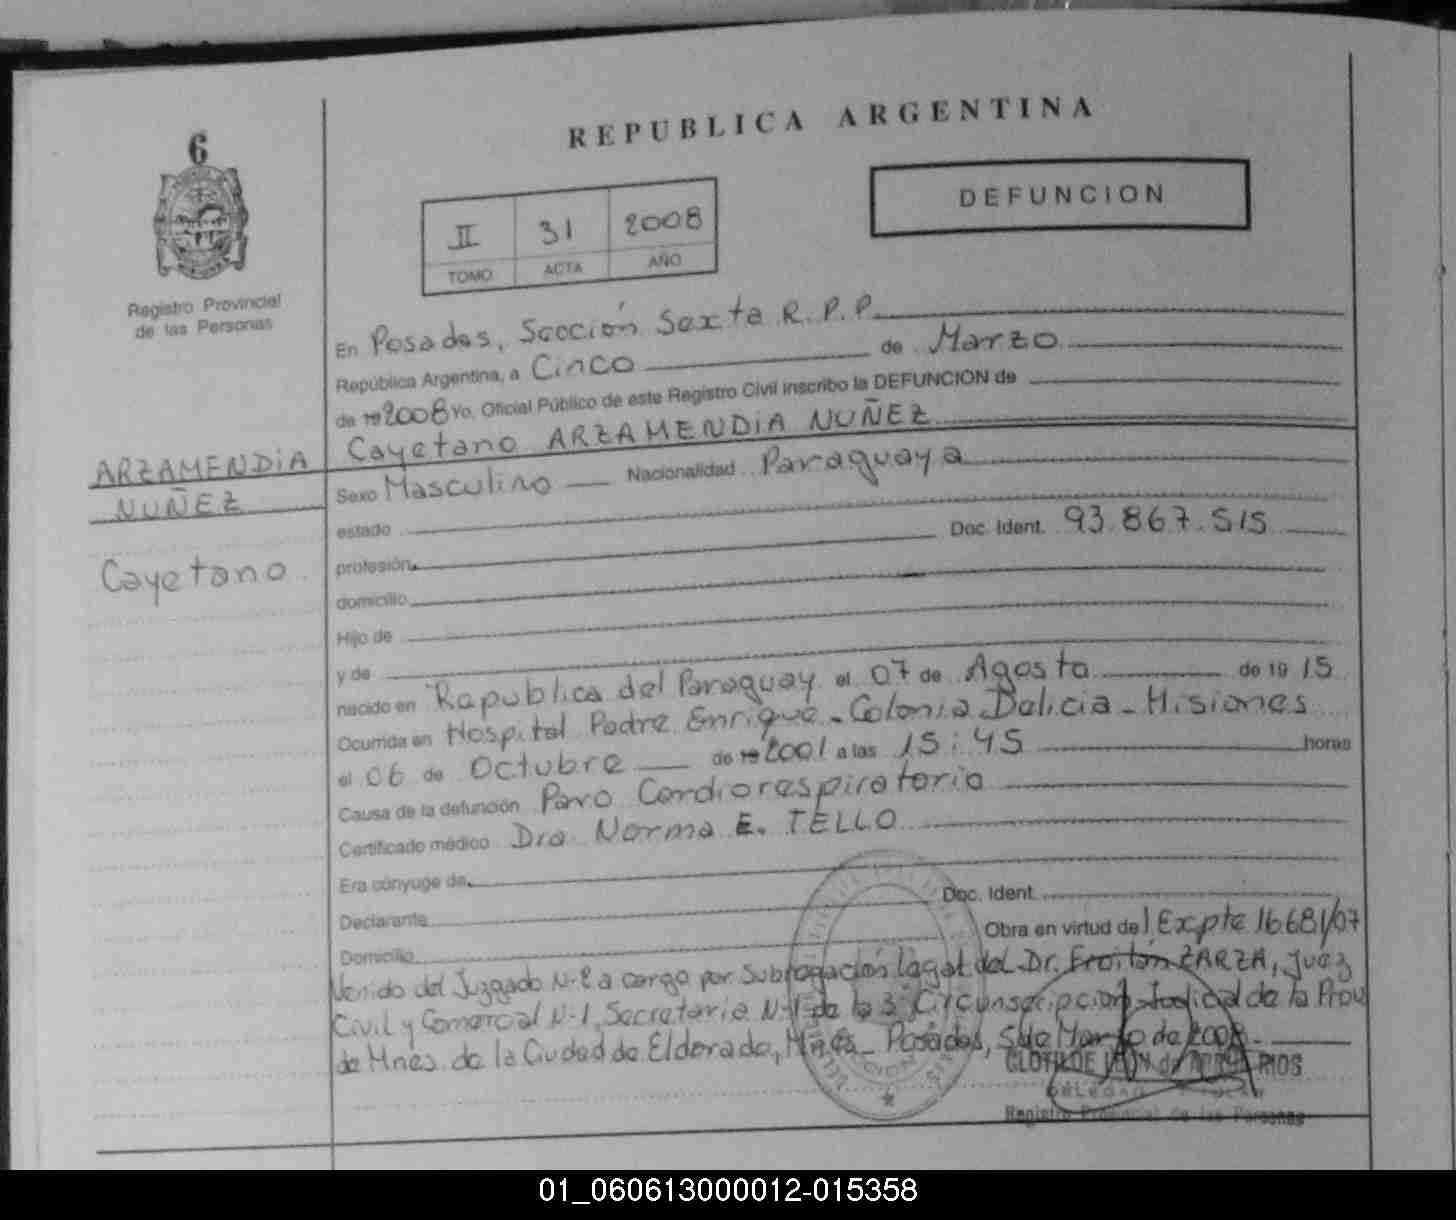 REPUBLICA ARGENTINA
6
DEFUNCION
II 31 2008
TOMO ACTA AÑO
Registro Provincial
de las Personas
En Posadas, Sección Sexta R.P.P.
República Argentina, a Cinco de Marzo
de 19 2008 Yo, Oficial Público de este Registro Civil inscribo la DEFUNCION de
Cayetano ARZAMENDIA NUÑEZ
ARZAMENDIA
NUÑEZ
Cayetano
Sexo Masculino Nacionalidad Paraguaya
estado
Doc. Ident. 93.867.515
profesión
domicilio
Hijo de
y de
nacido en Republica del Paraguay el 07 de Agosto de 19 15
Ocurrida en Hospital Padre Enrique - Colonia Delicia - Misiones
el 06 de Octubre de 19 2001 a las 15:45 horas
Causa de la defunción Paro Cardiorespiratorio
Certificado médico Dra Norma E. TELLO
Era cónyuge de
Doc. Ident.
Declarante
Obra en virtud del Expte 16681/07
Domicilio
Venido del Juzgado N-2 a cargo por Subrogación legal del Dr. ZARZA, Juez
Civil y Comercial N-1, Secretaria N-1 de la 3° Circunscripcion Judicial de la Prov
de Mnes. de la Ciudad de Eldorado, Mnes - Posadas, 5 de Marzo de 2008.
CLOTILDE
Registro Provincial de las Personas
01_060613000012-015358